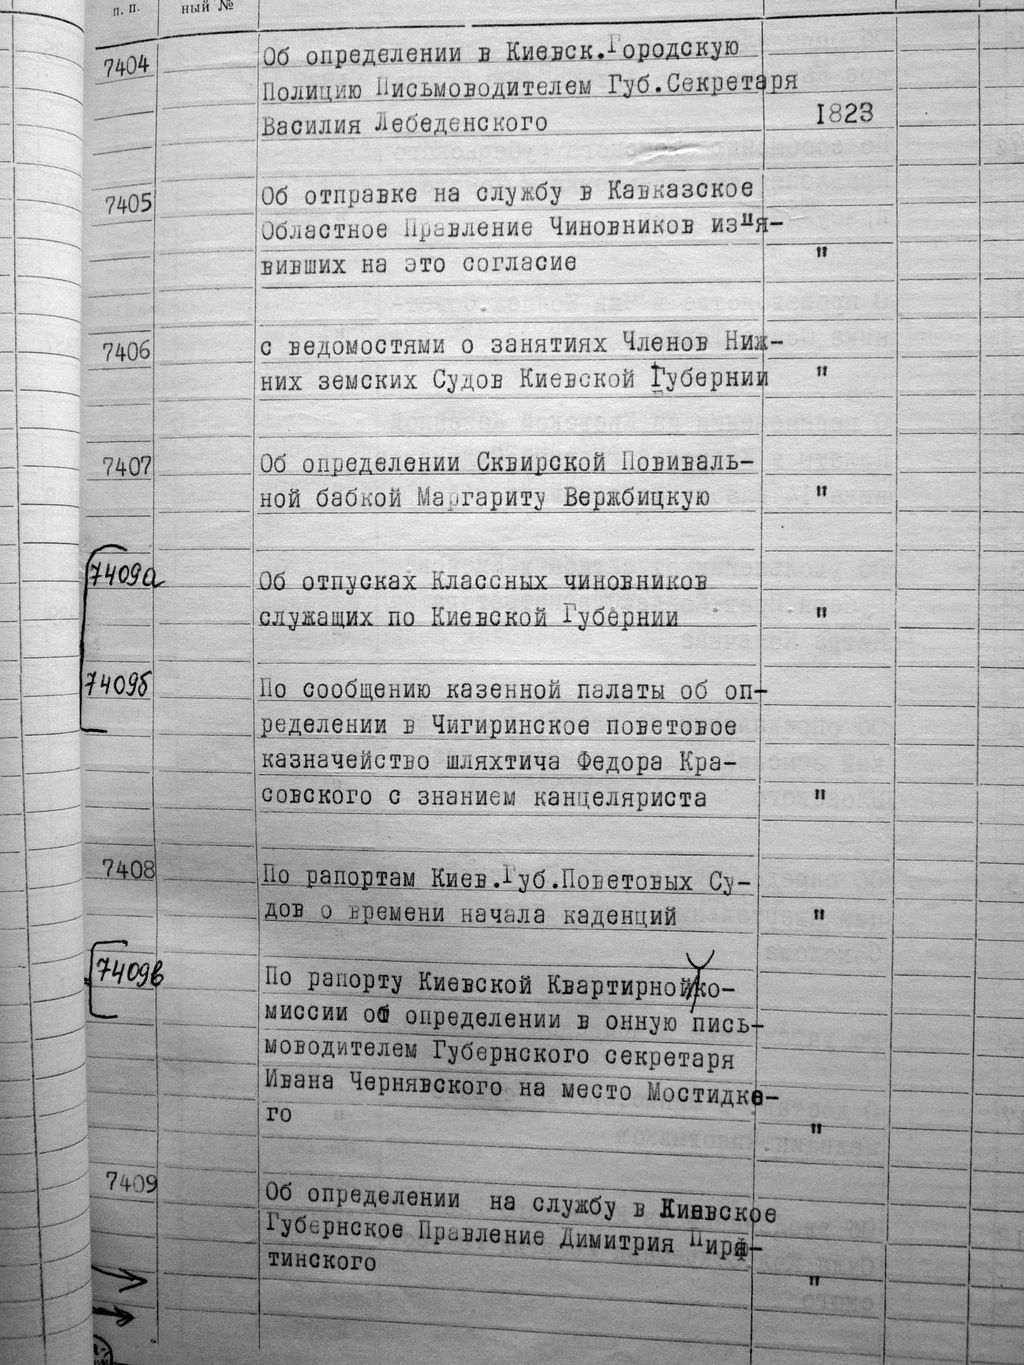 п. п.
ный №
7404
Об определении в Киевск.Городскую
Полицию Письмоводителем Губ.Секретаря
Василия Лебеденского
1823
7405
Об отправке на службу в Кавказское
Областное Правление Чиновников изъя-
вивших на это согласие
"
7406
с ведомостями о занятиях Членов Ниж-
них земских Судов Киевской Губернии
"
7407
Об определении Сквирской Повиваль-
ной бабкой Маргариту Вержбицкую
"
7409а
Об отпусках Классных чиновников
служащих по Киевской Губернии
"
7409б
По сообщению казенной палаты об оп-
ределении в Чигиринское поветовое
казначейство шляхтича Федора Кра-
совского с знанием канцеляриста
"
7408
По рапортам Киев.Губ.Поветовых Су-
дов о времени начала каденций
"
7409в
По рапорту Киевской Квартирной ко-
миссии об определении в онную пись-
моводителем Губернского секретаря
Ивана Чернявского на место Мостидко-
го
"
7409
Об определении на службу в Киевское
Губернское Правление Димитрия Пиря-
тинского
"